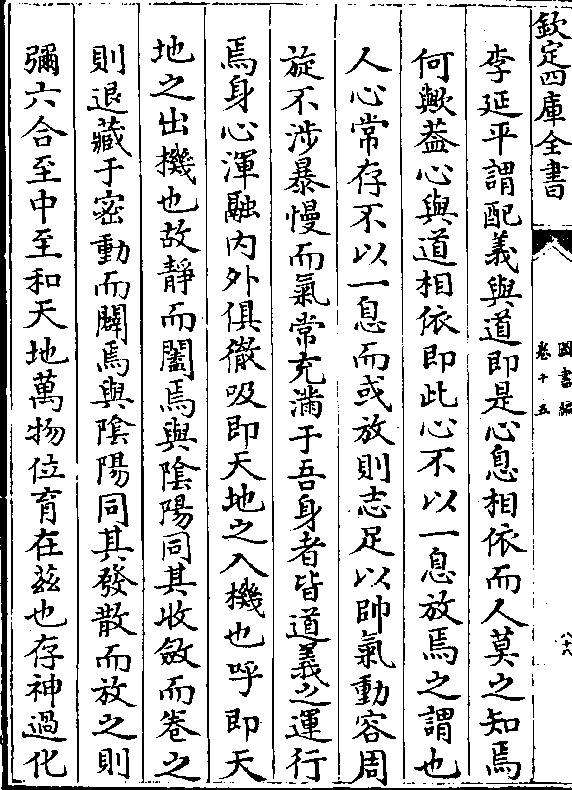 欽定四庫全書
圖書編
卷十五
李延平謂配義與道即是心息相依而人莫之知焉
何歟葢心與道相依即此心不以一息放焉之謂也
人心常存不以一息而或放則志足以帥氣動容周
旋不涉暴慢而氣常充滿于吾身者皆道義之運行
焉身心渾融内外俱徹吸即天地之入機也呼即天
地之出機也故靜而闔焉與陰陽同其收斂而卷之
則退藏于密動而闢焉與陰陽同其發散而放之則
彌六合至中至和天地萬物位育在兹也存神過化